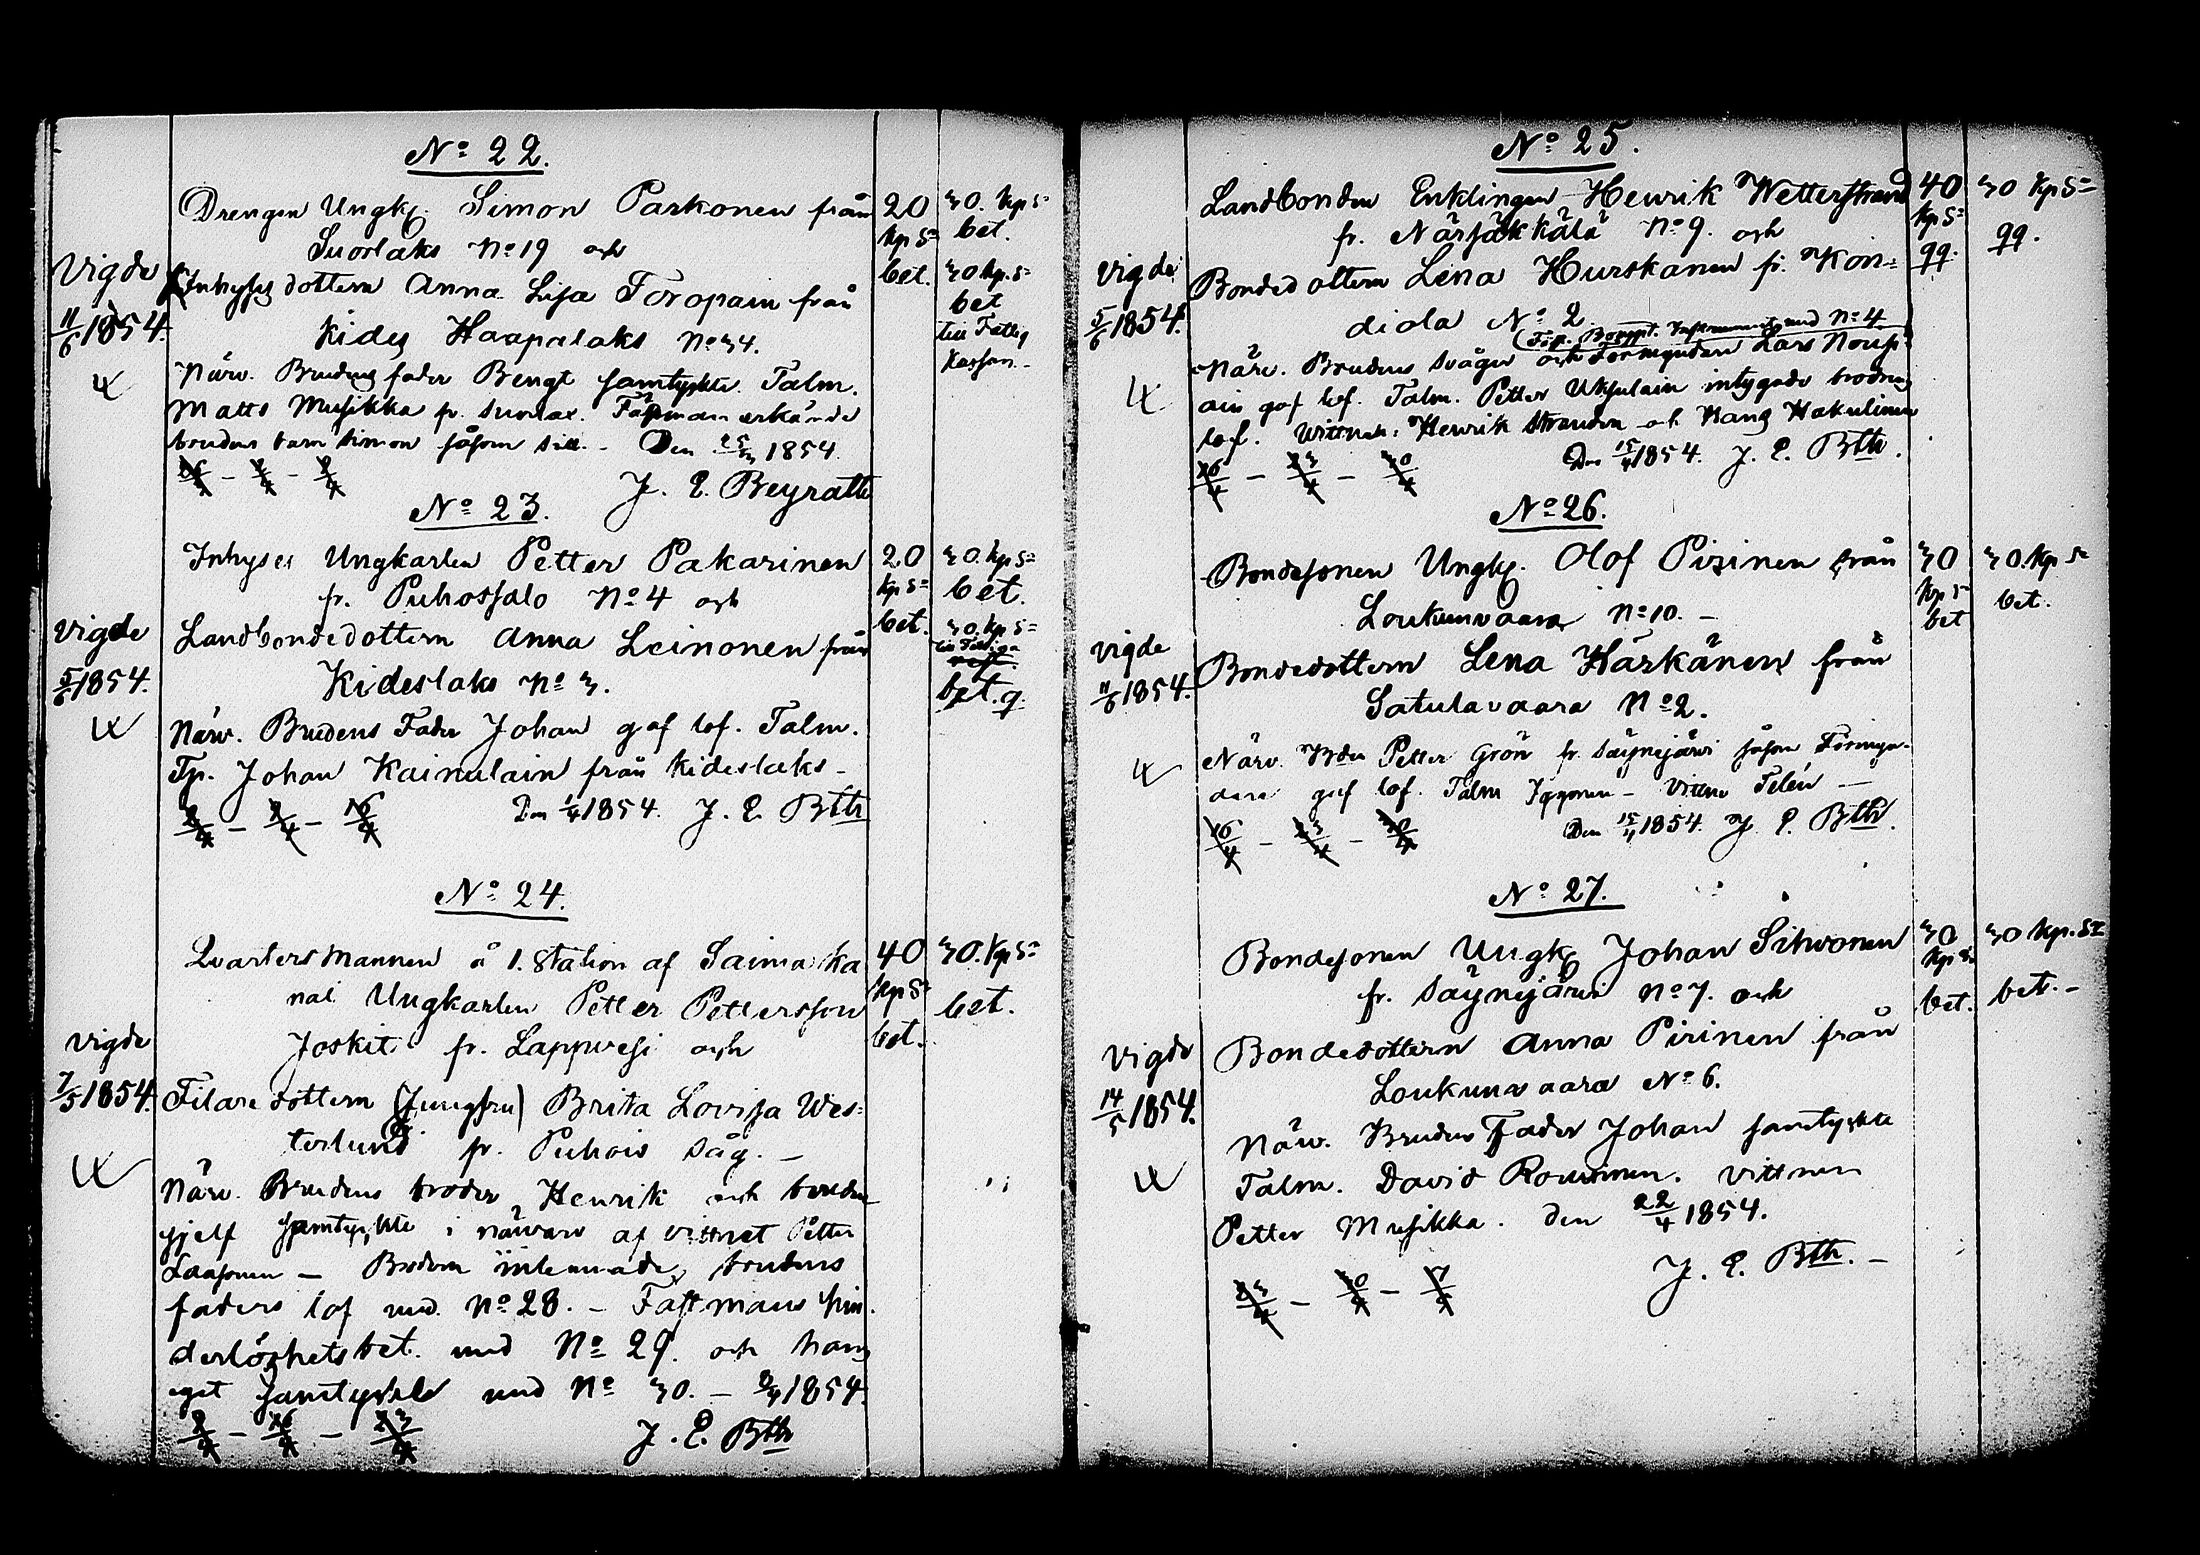 No 22.
Drengen Ungk. Simon Parkonen från
Suorlaks No 19 och
Inhyses dottern Anna Lisa Toropain från
Kides Haapalaks No 34.
Närv. Brudens fader Bengt samtyckte. Talm.
Matts Musikka fr. Suorlax. Fästman erkände
brudens barn Simon såsom sitt. - Den 25/3 1854
J. E. Beyrath
Vigde
11/6 1854.
20
Kp S=
bet.
30. Kp S=
bet.
30 Kp. S=
bet
till Fattig
Kassan.-
No 23.
Inhyses Ungkarlen Petter Pakarinen
fr. Puhossalo No 4 och
Landbondedottern Anna Leinonen från
Kideslaks No 3.
Närv. Brudens Fader Johan gaf lof. Talm.
Tp. Johan Kainulain från Kideslaks -
2/4 - 9/4 - 16/4 Den 1/4 1854. J. E. Bth
Vigde
5/6 1854.
20
Kp S=
bet.
30. Kp S=
bet.
30. Kp S=
bet.
No 24.
Qvartersmannen å 1. Station af Saima ka
nal Ungkarlen Petter Pettersson
Joskit fr. Lappvesi och
Filaredottern (Jungfru) Brita Lovisa Wes=
terlund fr. Puhois Såg. -
Närv. Brudens broder Henrik och bruden
sjelf samtyckte i närvaro af vittnet Petter
Laasonen - Brodern inlemnade brudens
faders lof med No 28. - Fästmans hin
derlöshetsbet. med No 29. och hans
eget samtycke med No 30. - 8/4 1854.
9/4 - 16/4 - 23/4 J. E. Bth
Vigde
7/5 1854.
40
Kp S=
bet.
30. Kp S=
bet.
No 25.
Landbonden Enklingen Henrik Wetterstrand
fr. Närsäkkälä No 9. och
Bondedottern Lena Hurskanen fr. Kon=
diola No 2
(Förp. Bouppt. Instrument med No 4
Närv. Brudens svåger och Förmyndare Lars Noup=
ain gaf lof. Talm. Petter Uksulain intygade brodrens
lof. Wittnen: Henrik Stranden och Hans Hakulinen
16/4 - 23/4 - 30/4 Den 15/4 1854. J. E. Bth.
Vigde
5/6 1854.
40
Kp S=
qq.
30 Kp S=
qq.
No 26.
Bondesonen Ungk. Olof Pirinen från
Loukunvaara No 10. -
Bondedottern Lena Härkänen från
Satulavaara No 2.
Närv. Petter Grön fr. Säynejärvi såsom Förmyn-
dare gaf lof. Talm - Vittne Telén -
16/4 - 23/4 - 30/4 Den 15/4 1854. J. E. Bth.
Vigde
11/6 1854.
30
Kp S=
bet
30. Kp S=
bet.
No 27.
Bondesonen Ungk. Johan Sihvonen
fr. Säynejärvi No 7. och
Bondedottern Anna Pirinen från
Loukunvaara No 6.
Närv. Brudens Fader Johan samtyckte
Talm. David Rouvinen. Vittnen
Petter Musikka. Den 22/4 1854.
J. E. Bth. -
23/4 - 30/4 - 7/5
Vigde
14/5 1854.
30
Kp S=
bet.
30 Kp. S=
bet. -